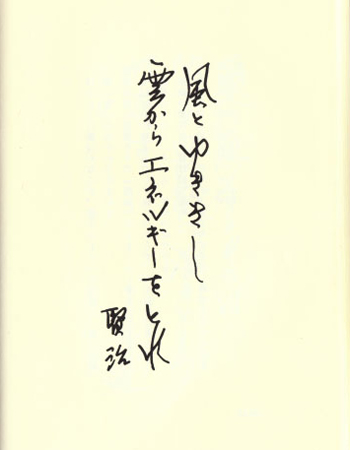 風とゆききし
雲からエネルギーをとれ
賢治